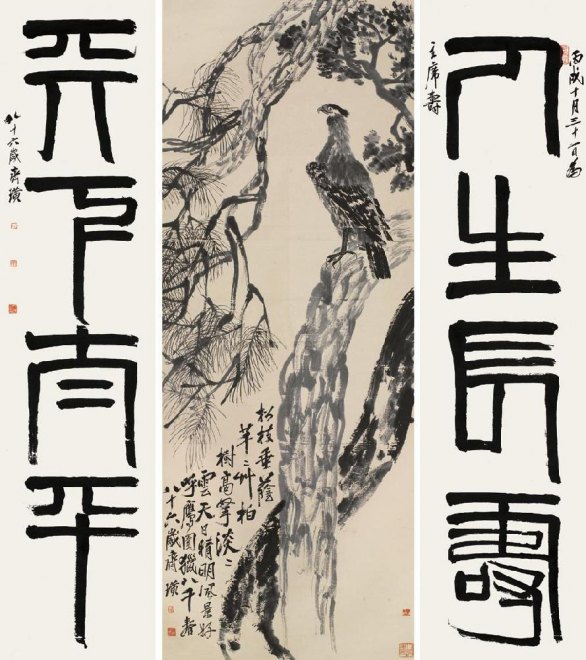 丙戌十月三十一日為
主席壽
人生長壽
天下太平
八十六歲齊璜
松枝垂蔭
芊〻艸柏
樹高擎淡〻
雲天日晴明風景好
呼鷹圍獵八千春
八十六歲齊璜